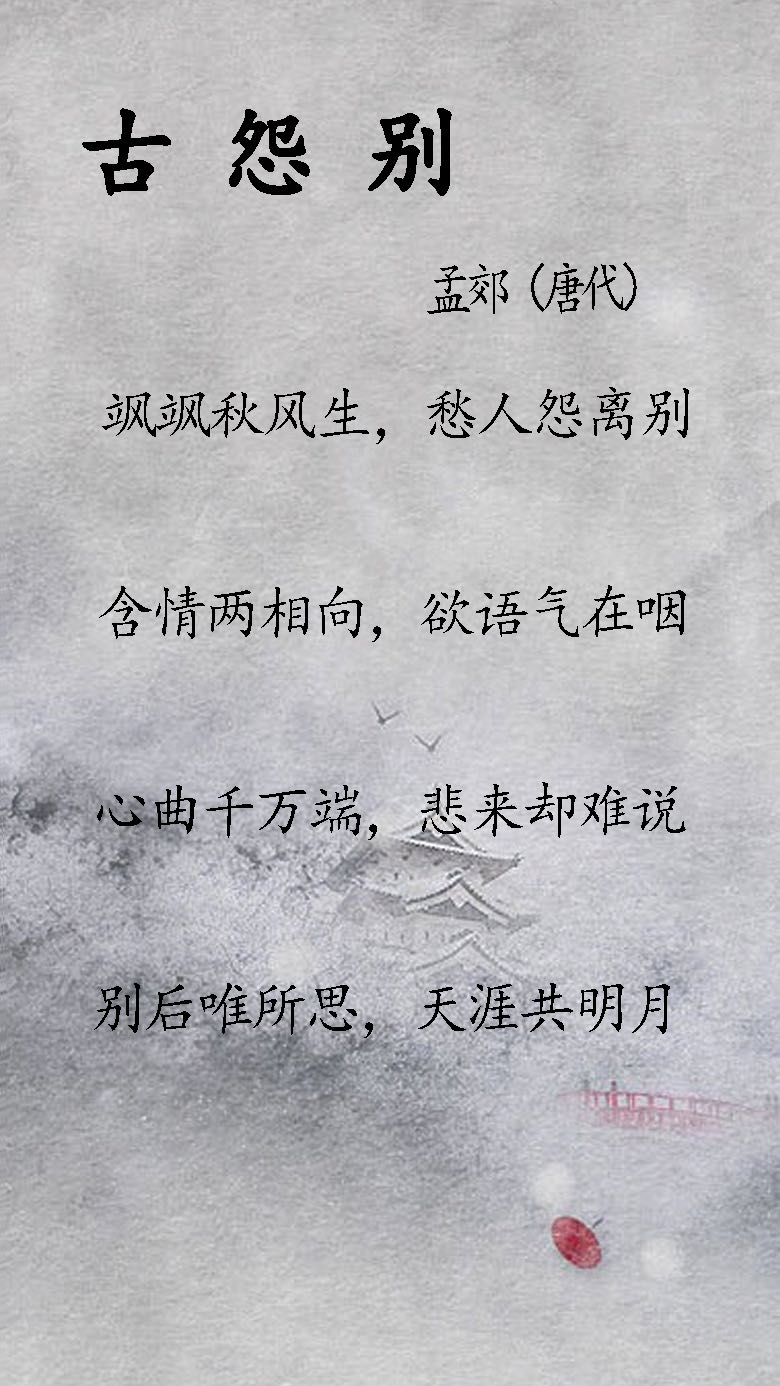 古怨别
孟郊（唐代）
飒飒秋风生，愁人怨离别
含情两相向，欲语气在咽
心曲千万端，悲来却难说
别后唯所思，天涯共明月